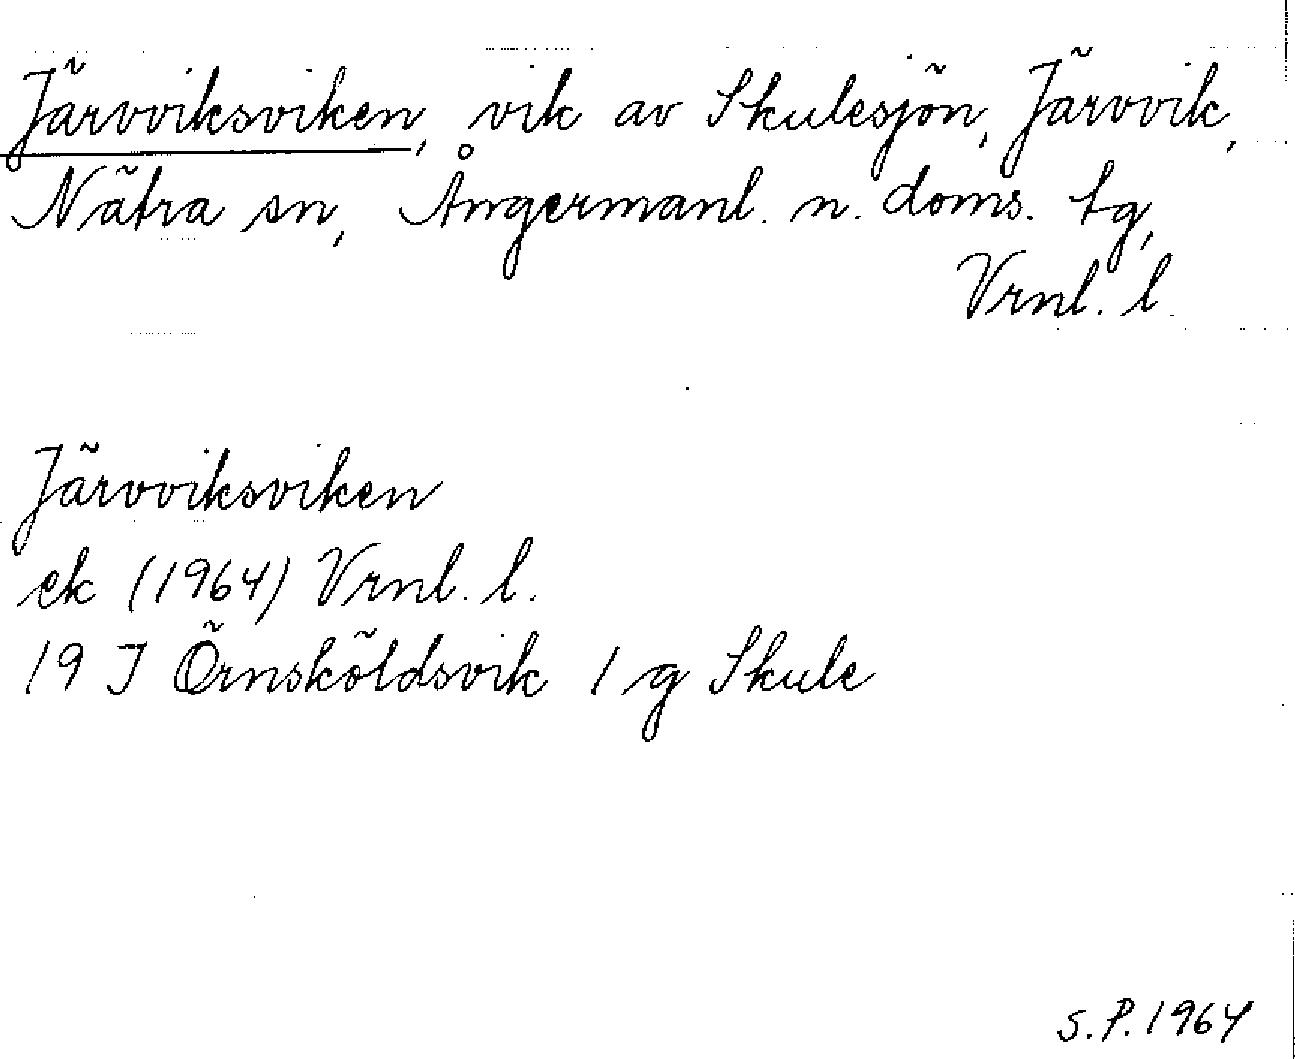 Järvviksviken, vik av Skulesjön, Järvvik,
Nätra sn, Ångermanl. n. doms. tg,
Vrnl. l.
Järvviksviken
ek (1964) Vrnl. l.
19 J Örnsköldsvik 1 g Skule
S.P. 1964